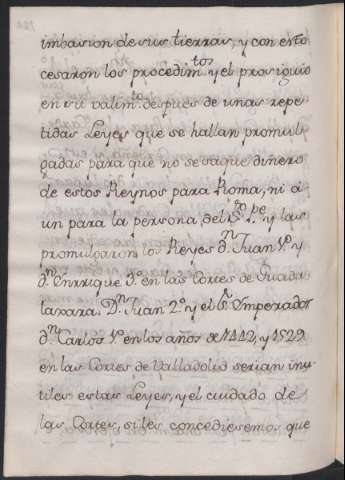 imbasion de sus tierras, y con esto
cesaron los procedim.tos y el prosiguio
en su valim.to despues de unas repe
tidas Leyes que se hallan promul
gadas para que no se saque dinero
de estos Reynos para Roma, ni a
un para la persona del S.to P.e y las
promulgaron los Reyes d.n Juan 1.o y
d.n Enrrique 3.o en las Cortes de Guada
laxara. D.n Juan 2.o y el S.r Ymperador
d.n Carlos 1.o en los años de 1442, y 1529
en las Cortes de Valladolid serian inu
tiles estas Leyes, y el cuidado de
las Cortes, si les concediesemos que